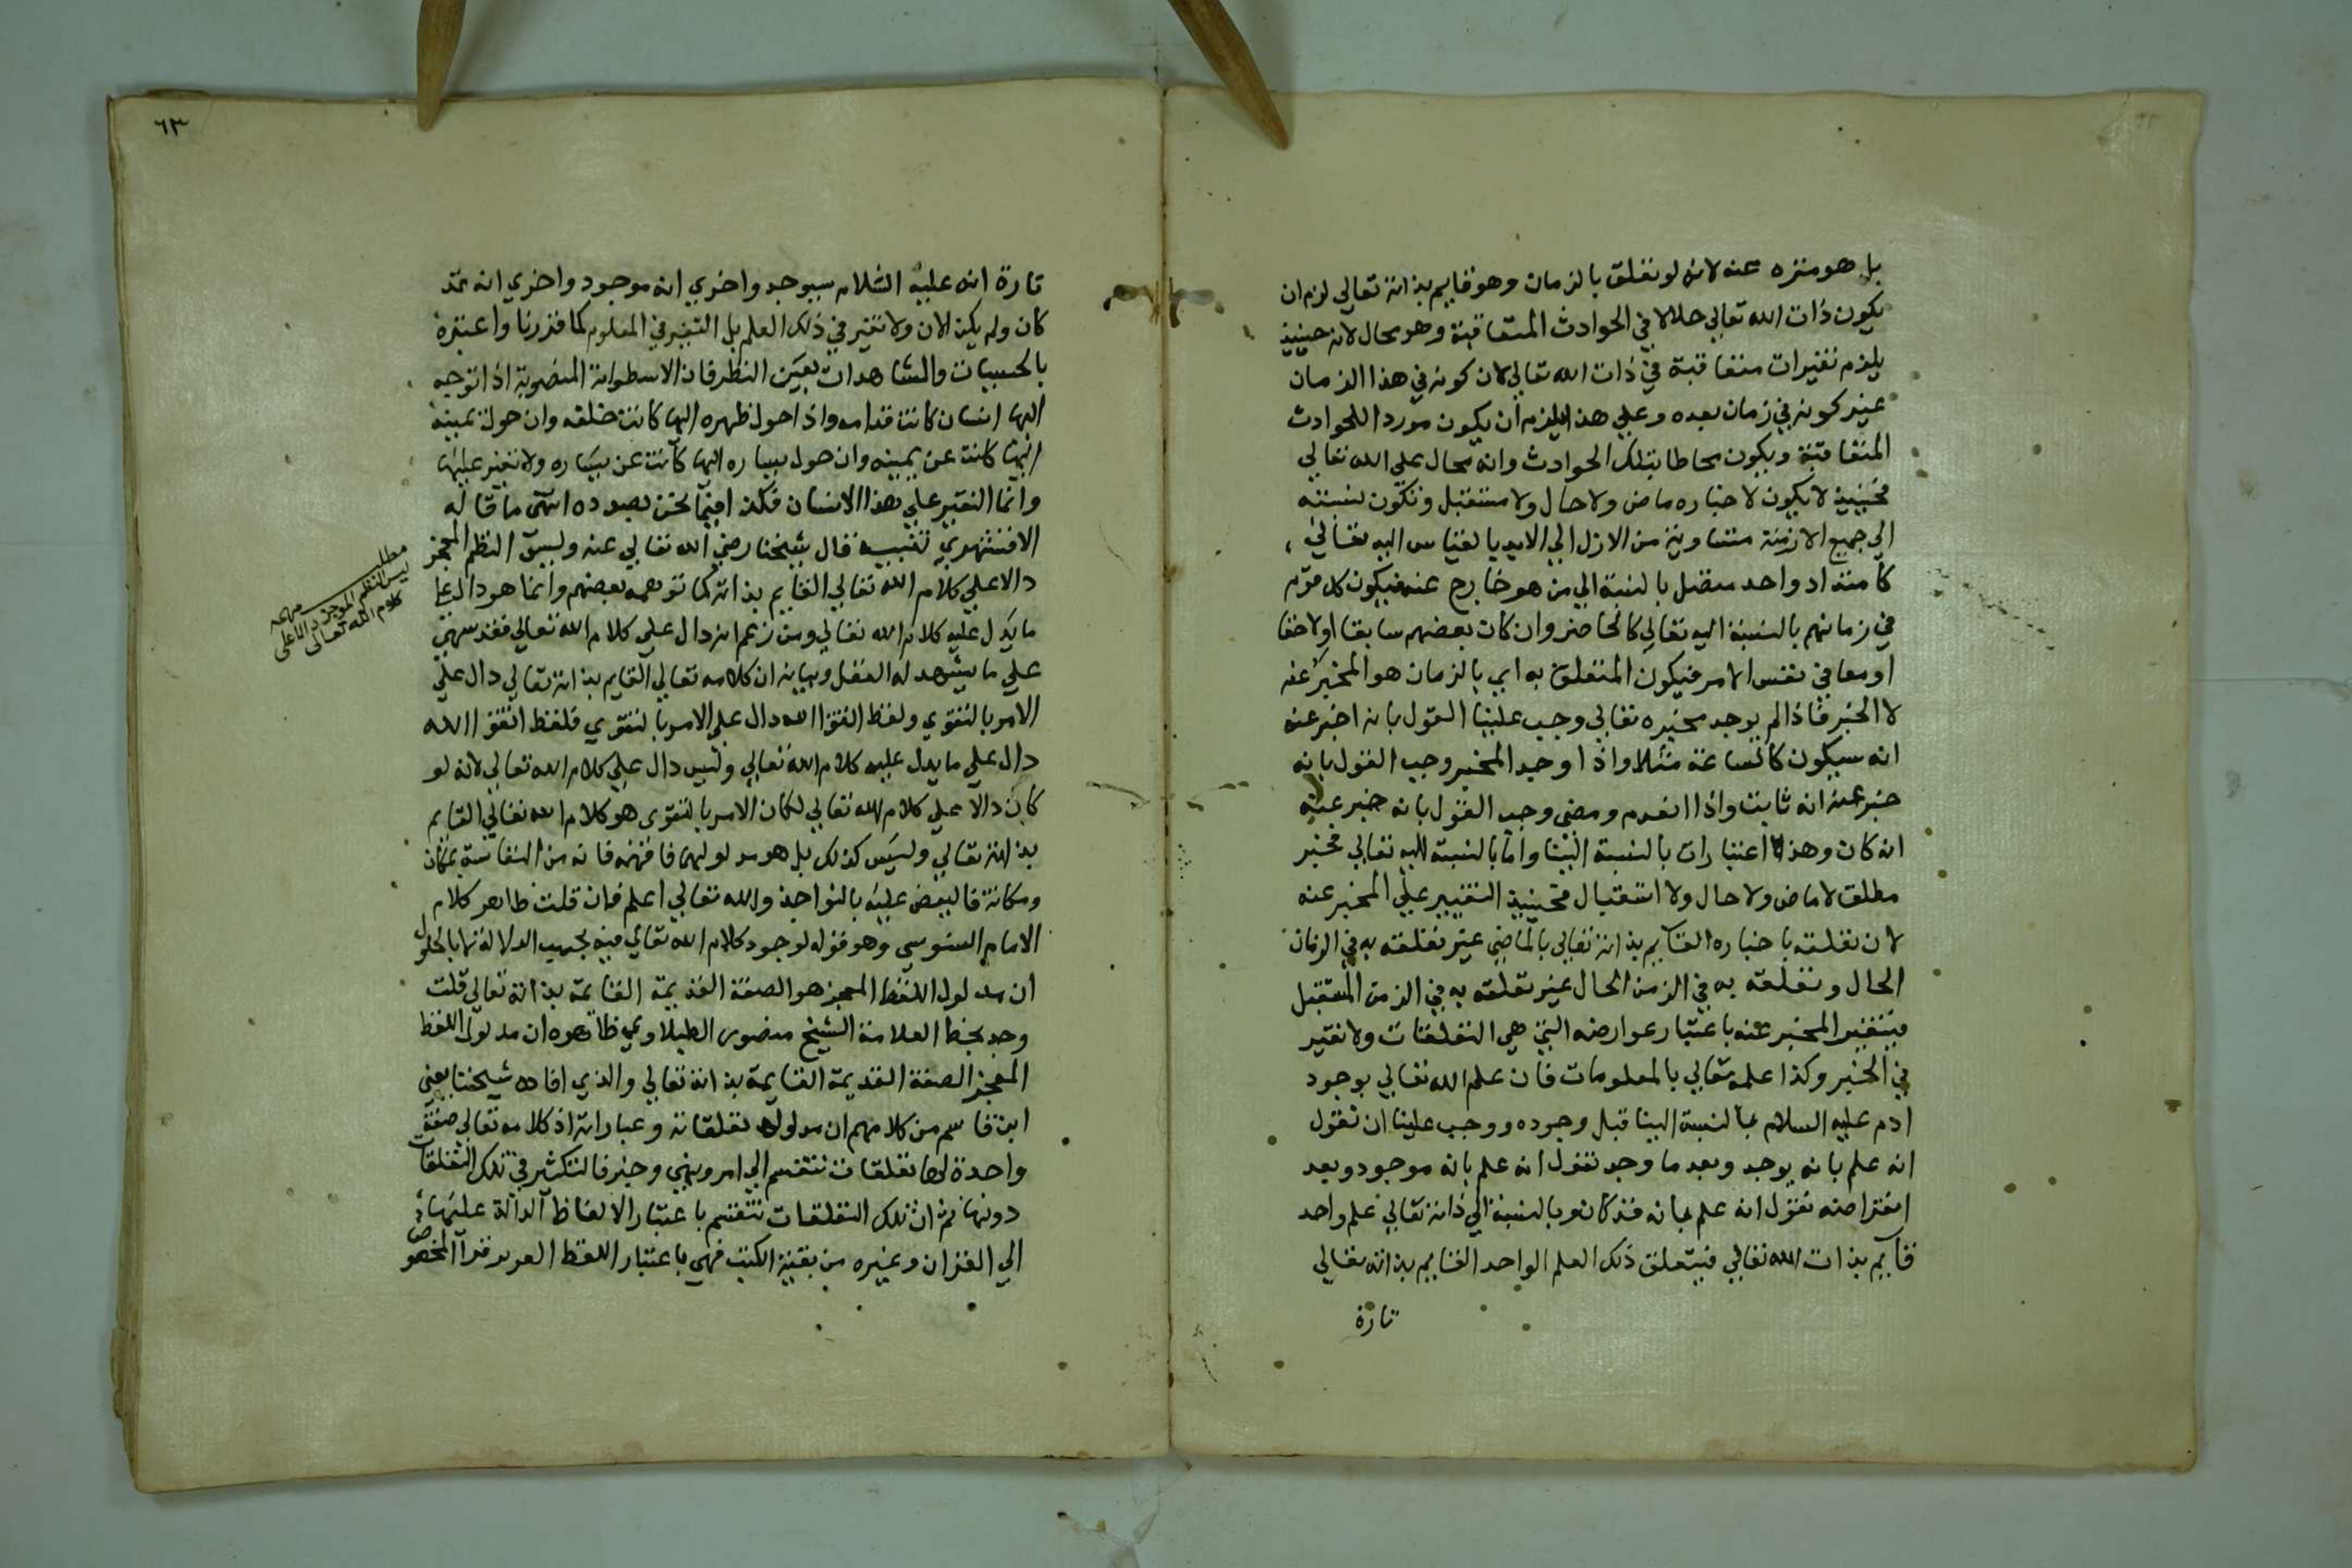 بل هو منزه عنه لانه لو تعلق بالزمان وهو قايم بذاته تعالي لزم ان
يكون ذات الله تعالي حلالا في الحوادث المتعاقبة وهو محال لانه حينيذ
يلزم تغيرات متعاقبة في ذات الله تعالي لان كونه في هذا الزمان
غير كونه في زمان بعده وعلي هذا يلزم ان يكون موردا للحوادث
المتعاقبة ويكون محاطا بتلك الحوادث وانه محال علي الله تعالي
فحينيذ لا يكون لاخباره ماض ولا حال ولا مستقبل وتكون نسبته
الي جميع الازمنة متساوية من الازل الي الابد بالقياس اليه تعالي
كامتداد واحد متصل بالنسبة الي من هو خارج عنه فيكون كل قوم
في زمانهم بالنسبة اليه تعالي كالحاضر وان كان بعضهم سابقا او لاحقا
او معا في نفس الامر فيكون المتعلق به اي بالزمان هو المخبر عنه
لا الخبر فاذا لم يوجد مخبره تعالي وجب علينا القول بانه اخبر عنه
انه سيكون كالساعة مثلا واذا وجد المخبر وجب القول بانه
خبر عنه انه ثابت واذا انعدم ومضي وجب القول بانه خبر عنه
انه كان وهذه اعتبارات بالنسبة الينا واما بالنسبة اليه تعالي فخبر
مطلق لا ماض ولا حال ولا استقبال فحينيذ التغيير علي المخبر عنه
لان تعلقه باخباره القايم بذاته تعالي بالماضي غير تعلقه به في الزمان
الحال وتعلقه به في الزمن الحال غير تعلقه به في الزمن المستقبل
فيتغير المخبر عنه باعتبار عوارضه التي هي التعلقات ولا تغير
في الخبر وكذا علمه تعالي بالمعلومات فان علم الله تعالي بوجود
ادم عليه السلام بالنسبة الينا قبل وجوده ووجب علينا ان نقول
انه علم بانه يوجد وبعد ما وجد نقول انه علم بانه موجود وبعد
انقراضه نقول انه علم بانه قد كان وبالنسبة الي ذاته تعالي علم واحد
قايم بذات الله تعالي فيتعلق ذلك العلم الواحد القايم بذاته تعالي
تارة
٦٣
تارة انه عليه السلام سيوجد واخري انه موجود واخري انه قد
كان ولم يكن الان ولا تغير في ذلك العلم بل التغير في المعلوم كما قررنا واعتبره
بالحسيات والمشاهدات بعين النظر فان الاسطوانة المنصوبة اذا توجه
اليها انسان كانت قدامه واذا حول ظهره اليها كانت خلفه وان حول يمينه
اليها كانت عن يمينه وان حول يساره اليها كانت عن يساره ولا تغير عليها
وانما التغير علي هذا الانسان فكذا فيما نحن بصدده انتهي ما قاله
الاقشهري تنبيه قال شيخنا رضي الله تعالي عنه وليس النظم المعجز
دالا علي كلام الله تعالي القايم بذاته كما توهمه بعضهم وانما هو دال علي
ما يدل عليه كلام الله تعالي ومن زعم انه دال علي كلام الله تعالي فقد
علي ما يشهد له العقل وبيانه ان كلامه تعالي القايم بذاته تعالي دال علي
الامر بالتقوي ولفظ اتقوا الله دال علي الامر بالتقوي فلفظ اتقوا الله
دال علي ما يدل عليه كلام الله تعالي وليس دال علي كلام الله تعالي لانه لو
كان دالا علي كلام الله تعالي لكان الامر بالتقوي هو كلام الله تعالي القايم
بذاته تعالي وليس كذلك بل هو مدلولهما فافهمه فانه من النفاسة بمكان
ومكانة فاليعض عليه بالنواجذ والله تعالي اعلم فان قلت ظاهر كلام
الامام السنوسي وهو قوله لوجود كلام الله تعالي فيه بحسب الدلالة لا بالحلول
ان مدلول اللفظ المعجز هو الصفة القديمة القايمة بذاته تعالي قلت
وجد بخط العلامة الشيخ منصور الطبلاوي ظاهره ان مدلول اللفظ
المعجز الصفة القديمة القايمة بذاته تعالي والذي افاده شيخنا يعني
ابن قاسم من كلامهم ان مدلوله تعلقاته وعباراته اذ كلامه تعالي صفة
واحدة لها تعلقات تنقسم الي امر ونهي وخبر فالتكثر في تلك التعلقات
دونها ثم ان تلك التعلقات تنقسم باعتبار الالفاظ الدالة عليها
الي القران وغيره من بقية الكتب فهي باعتبار اللفظ العربي قرآ المخصوص
مطلب مهم
ليس النظم الموجز دالا علي
كلام الله تعالى